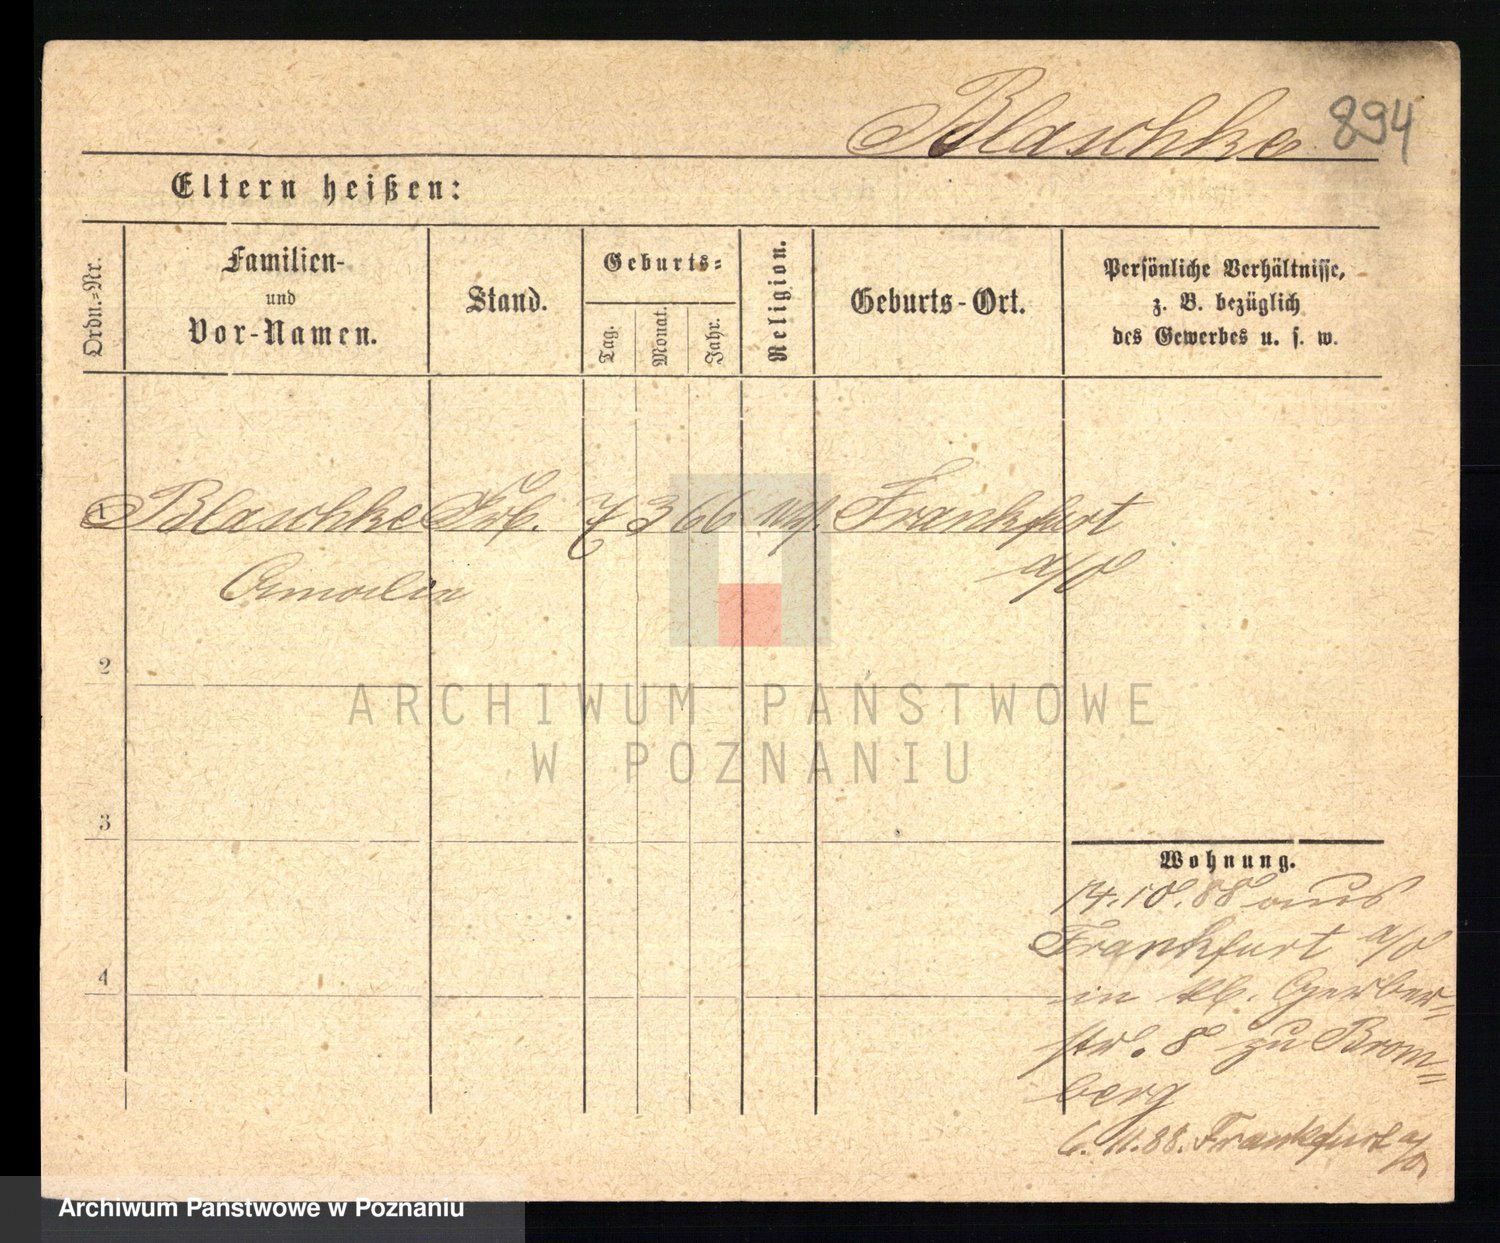 Blaschke 894
Eltern heißen:
Ordn.=Nr.
Familien-
und
Vor-Namen.
Stand.
Geburts=
Tag.
Monat.
Jahr.
Religion.
Geburts-Ort.
Persönliche Verhältnisse,
z. B. bezüglich
des Gewerbes u. s. w.
1 Blaschke 7 3 66 Frankfurt
a/O
2
3
4
ARCHIWUM PAŃSTWOWE
W POZNANIU
Wohnung.
14.10.88 aus
Frankfurt a/O
in kl. Gerber=
str. 8 zu Brom=
berg
6.11.88. Frankfurt a/O
Archiwum Państwowe w Poznaniu